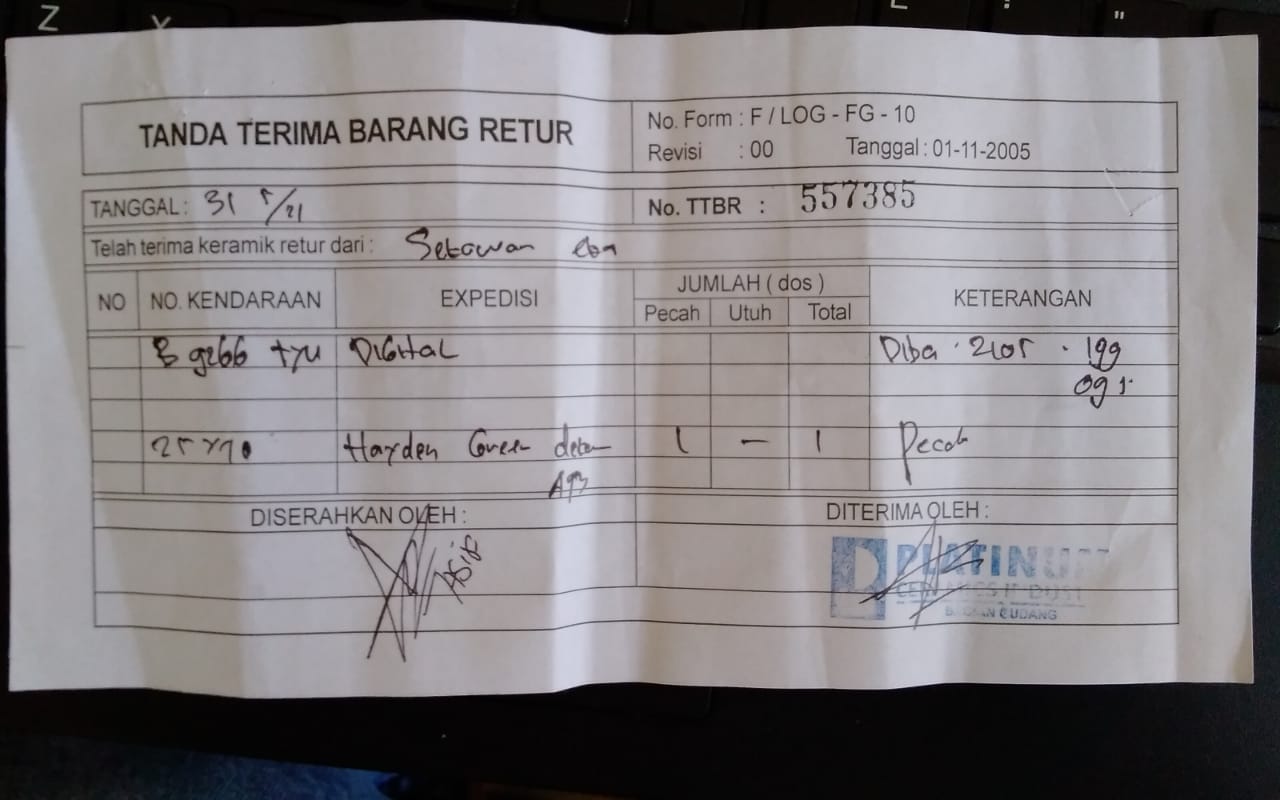 TANDA TERIMA BARANG RETUR
No. Form : F / LOG - FG - 10
Revisi : 00 Tanggal : 01-11-2005
TANGGAL : 31 5/21
No. TTBR : 557385
Telah terima keramik retur dari : Setiawan
NO NO. KENDARAAN EXPEDISI JUMLAH ( dos ) KETERANGAN
Pecah Utuh Total
B 9266 TYU DIGITAL Diba 2105 . 199
0951
25 x 40 Hayden Green 1 - 1 Pecah
DISERAHKAN OLEH : DITERIMA OLEH :
Asip
PLATINUM
CERAMICS INDUST
BAGIAN GUDANG